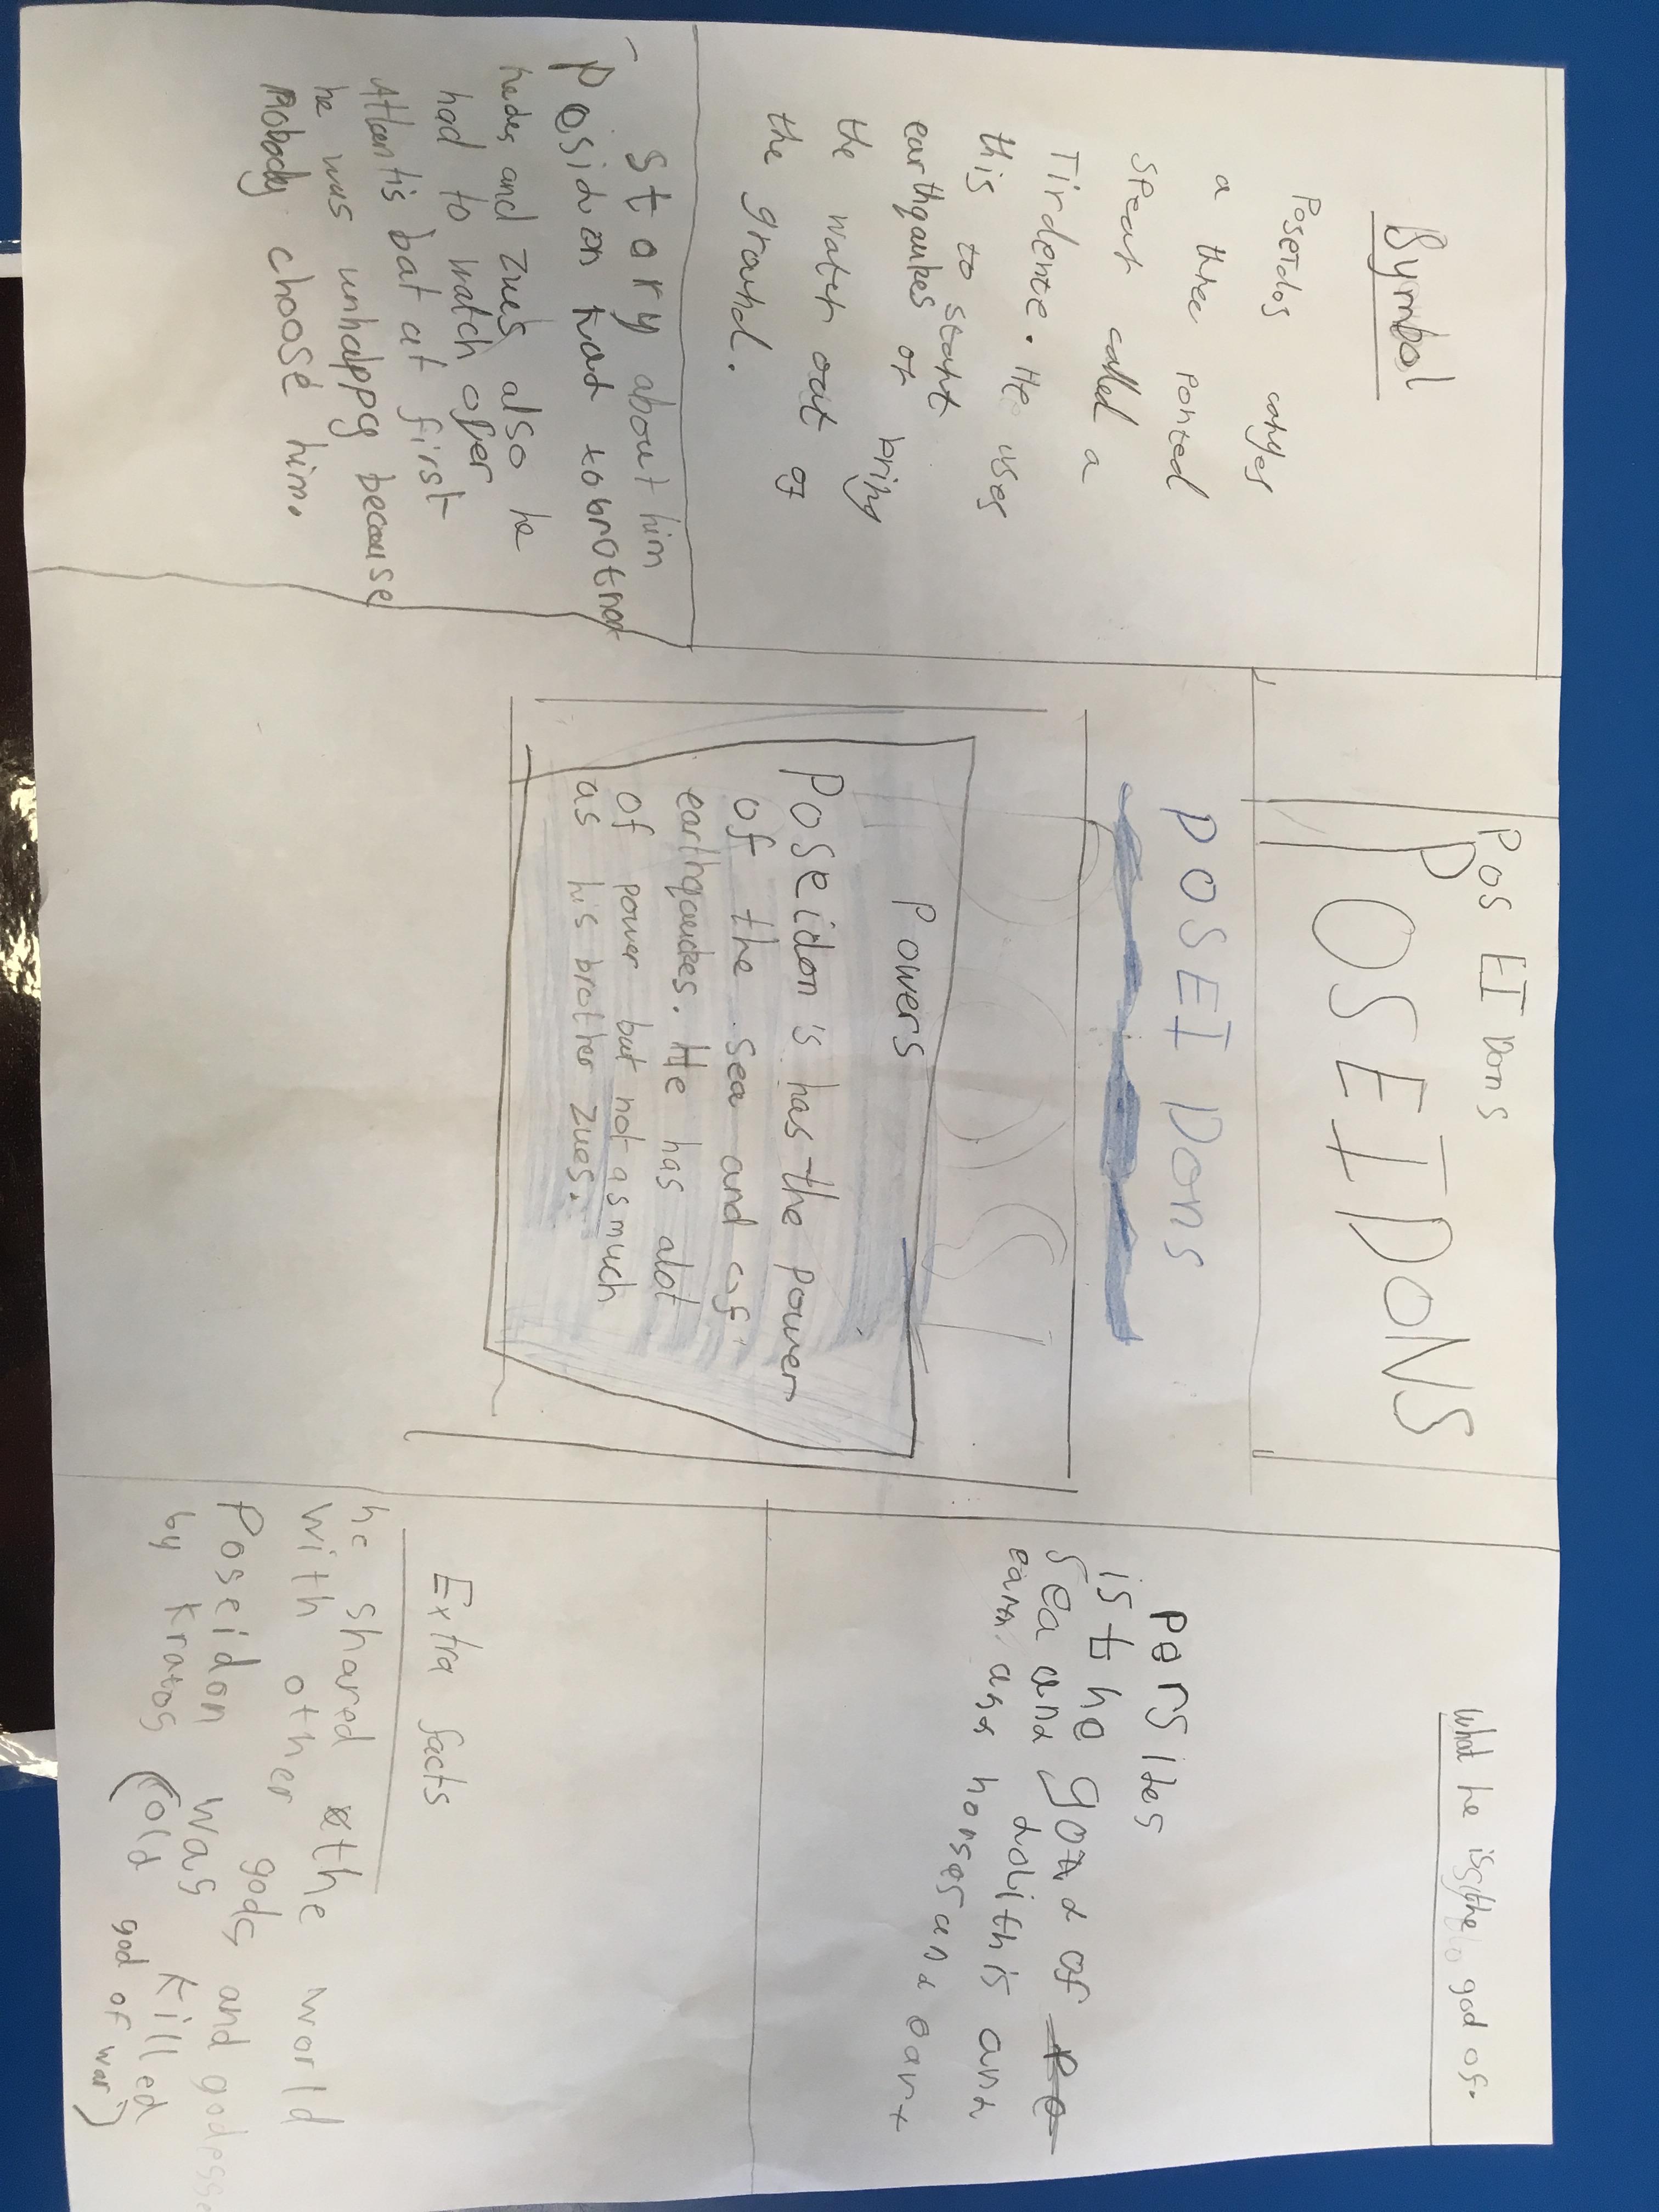 Symbol
Poseidos carryes
a three ponted
spear called a
Tirdente. He uses
this to start
earthqaukes or bring
the water out of
the ground.
story about him
Poseidon had to brother
hades and zues also he
had to watch ofer
Atlantis bat at first
he was unhappy because
Nobody choose him.
POSEIDons
POSEIDONS
POSEIDons
Powers
Poseidon's has the power
of the sea and of
earthqaukes. He has alot
of power but not as much
as his brother zues.
what he is the god of.
persites
is the god of
sea and
and horses and
Extra facts
he shared the world
with other gods and godesses
Poseidon was killed
by kratos (old god of war)